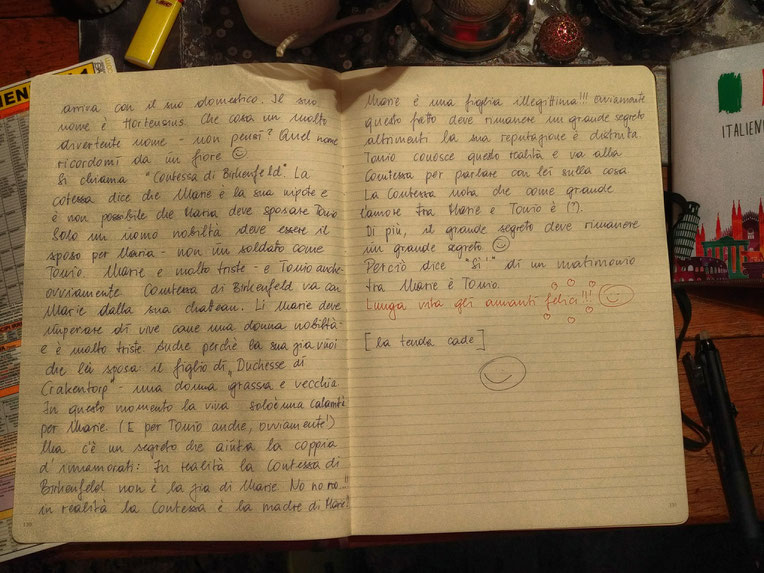 arriva con il suo domestico. Il suo
nome è Hortensius. Che cosa un molto
divertente nome - non pensi? Quel nome
ricordomi da un fiore
Si chiama "Contessa di Birkenfeld". La
cotessa dice che Marie è la sua nipote e
è non possibile che Maria deve sposare Tonio
Solo un uomo nobiltà deve essere il
sposo per Maria - non un soldato come
Tonio. Marie è molto triste - e Tonio anche
ovviamente. Comtessa di Birkenfeld va con
Marie dalla sua chateau. Li Marie deve
imperare di vive come una donna nobiltà -
e è molto triste. Anche perchè la sua zia vuoi
che lei sposa il figlio di "Duchesse di
Crakentorp" - una donna grassa e vecchia
In questo momento la viva solo è una calamità
per Marie. (E per Tonio anche, ovviamente!)
Ma c'è un segreto che aiuta la coppia
d'innamorati: In realità la Contessa di
Birkenfeld non è la zia di Marie. No no no...!!
in realità la Contessa è la madre di Marie!!
139
Marie è una figlia illegittima!!! Ovviamente
questo fatto deve rimanere un grande segreto
altrimenti la sua reputazione è distrutta.
Tonio conosce questo realità e va alla
Contessa per parlare con lei sulla cosa
La Contessa nota che come grande
l'amore tra Marie e Tonio è (?).
Di più, il grande segreto deve rimanere
un grande segreto
Perciò dice "Sì!" di un matrimonio
tra Marie è Tonio.
Lunga vita gli amanti felici!!!
[la tenda cade]
ITALIEN